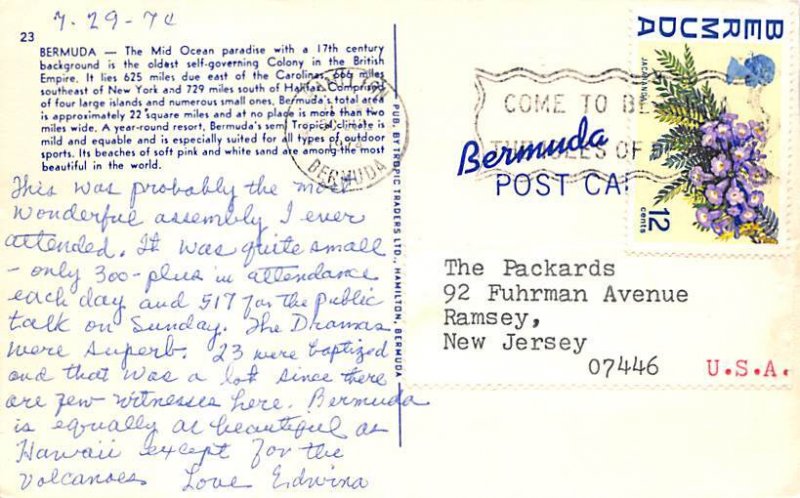 7-29-74
23
BERMUDA — The Mid Ocean paradise with a 17th century
background is the oldest self-governing Colony in the British
Empire. It lies 625 miles due east of the Carolinas, 666 miles
southeast of New York and 729 miles south of Halifax. Comprised
of four large islands and numerous small ones, Bermuda's total area
is approximately 22 square miles and at no place is more than two
miles wide. A year-round resort, Bermuda's semi Tropical climate is
mild and equable and is especially suited for all types of outdoor
sports. Its beaches of soft pink and white sand are among the most
beautiful in the world.
This was probably the most
wonderful assembly I ever
attended. It was quite small
- only 300-plus in attendance
each day and 517 for the public
talk on Sunday. The Dramas
were superb. 23 were baptized
and that was a lot since there
are few witnesses here. Bermuda
is equally as beautiful as
Hawaii except for the
volcanoes Love Edwina
PUB. BY TROPIC TRADERS LTD., HAMILTON, BERMUDA
BERMUDA
COME TO
OF
Bermuda
POST CA
BERMUDA
JACARANDA
12
cents
The Packards
92 Fuhrman Avenue
Ramsey,
New Jersey
07446
U.S.A.